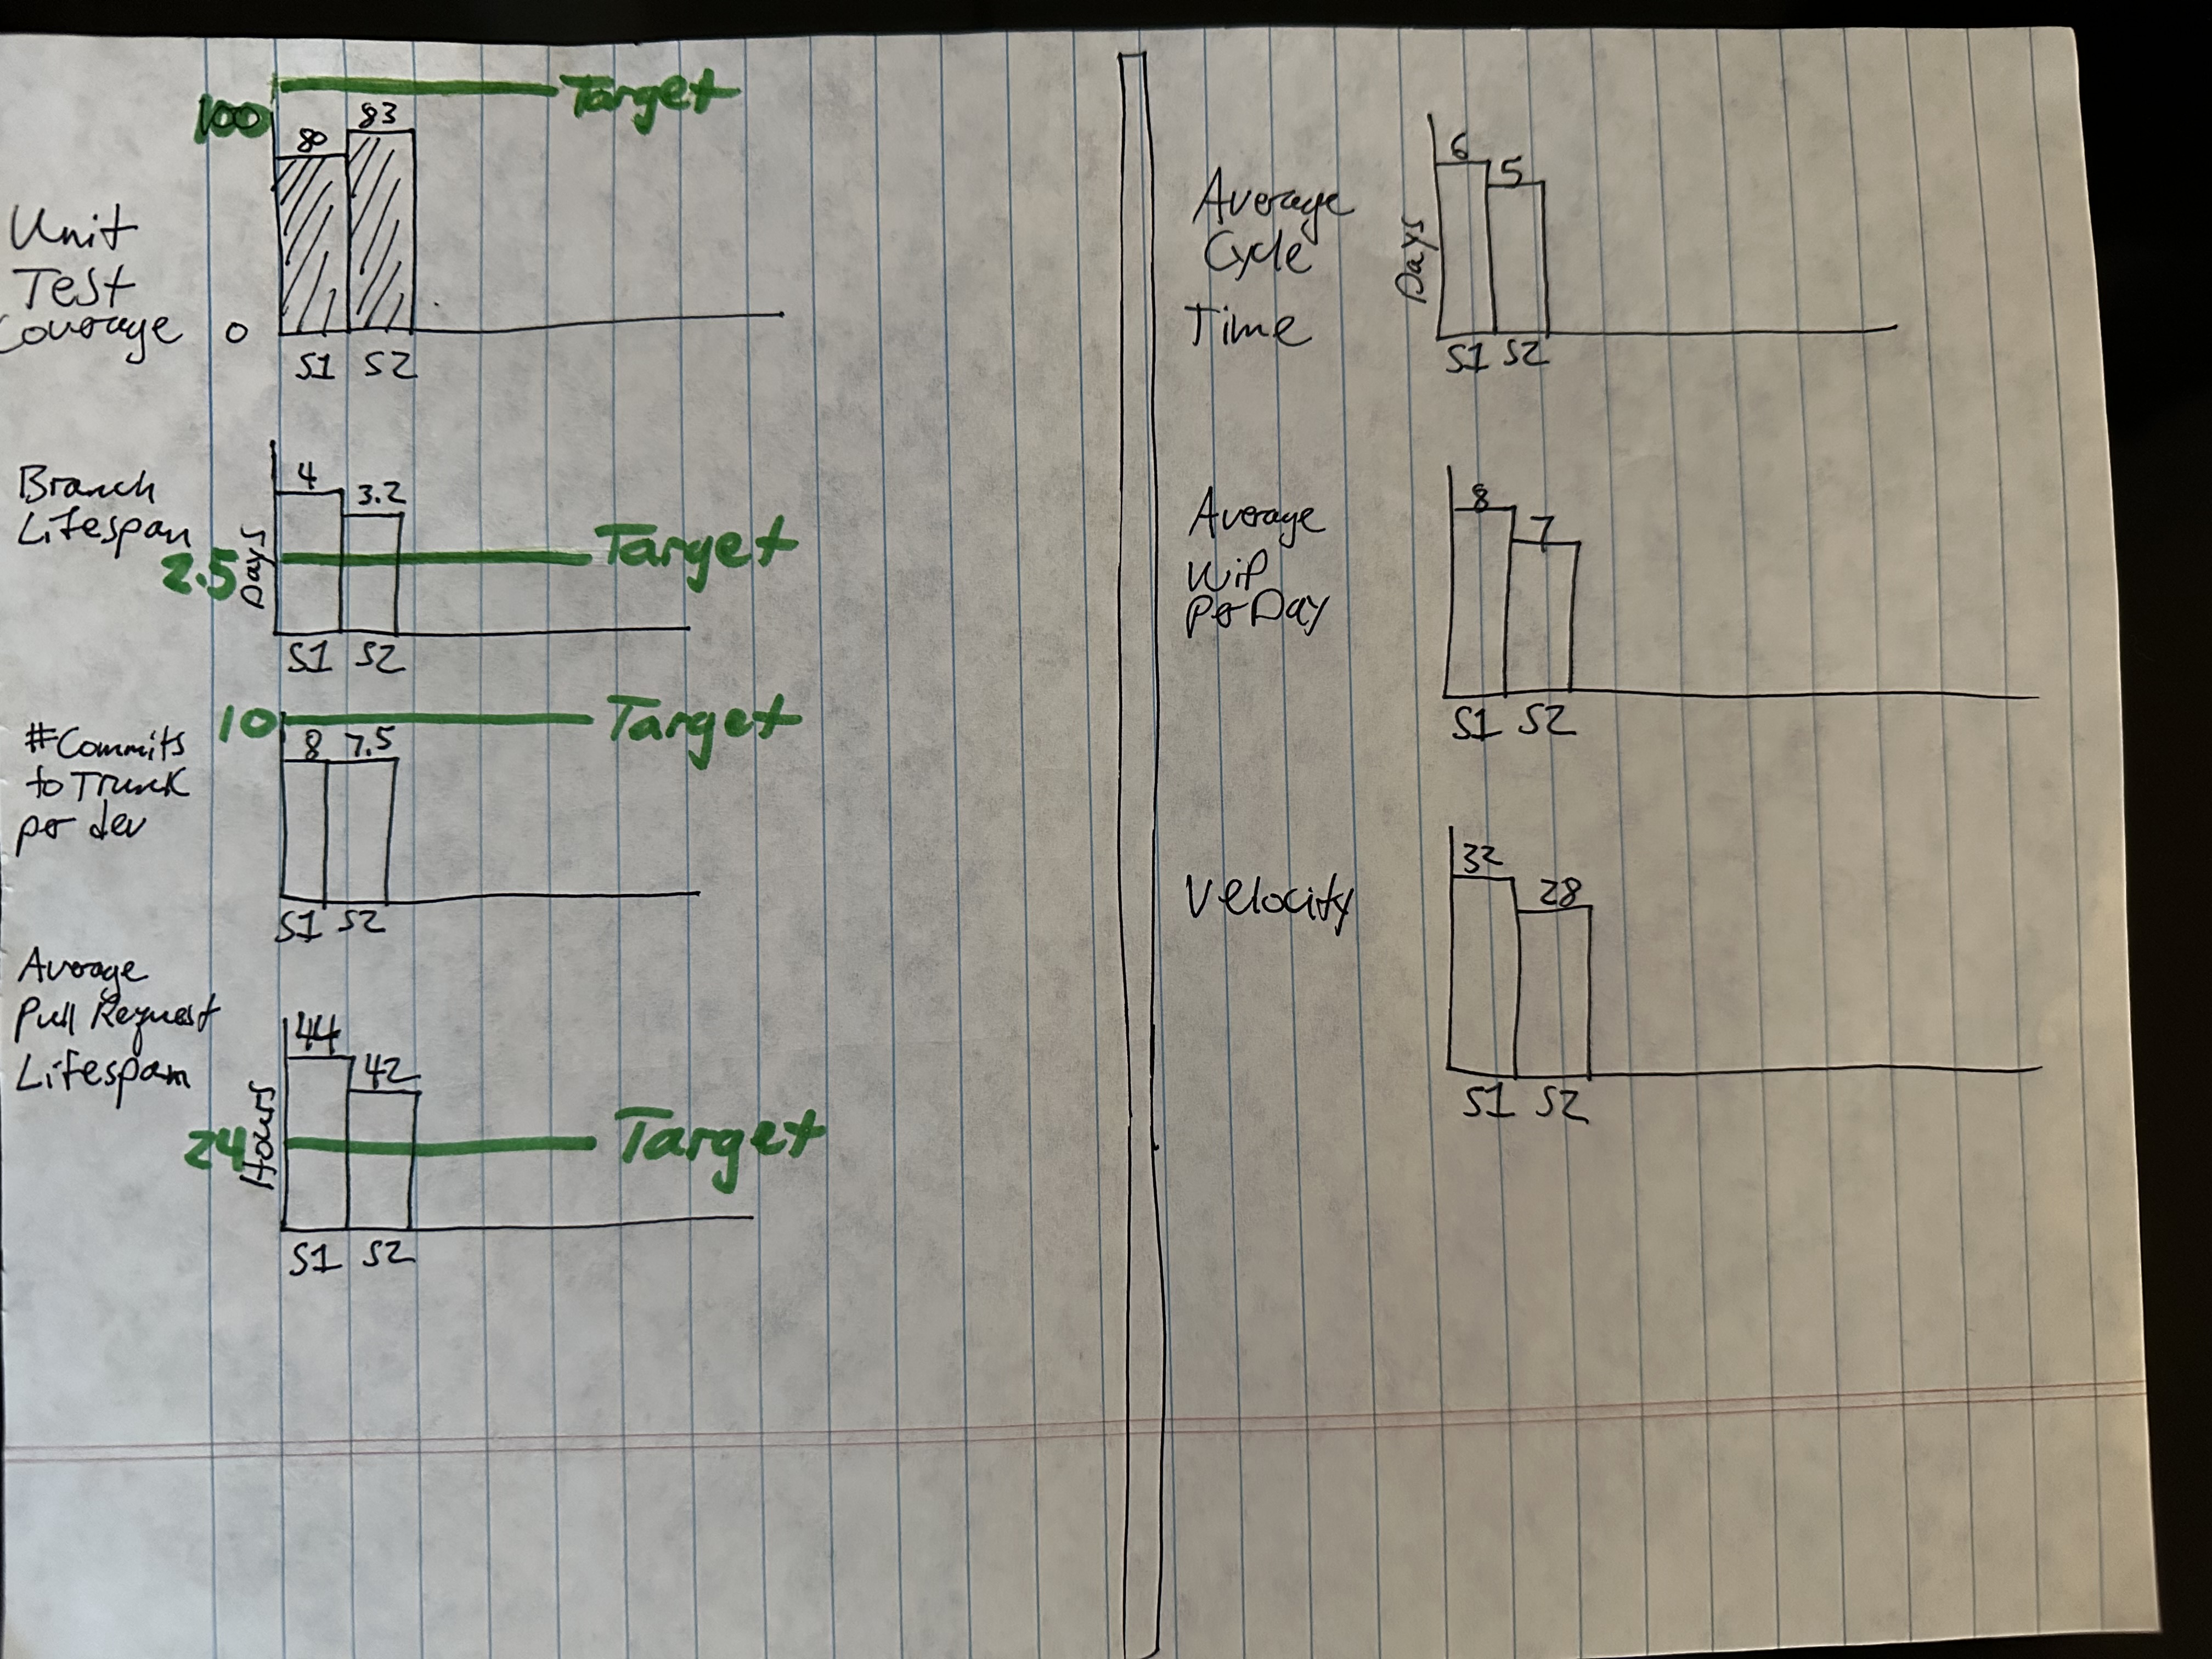 Unit
Test
Coverage
100
0
80
83
S1 S2
Target
Branch
Lifespan
2.5
Days
4
3.2
S1 S2
Target
#Commits
to Trunk
per dev
10
8 7.5
S1 S2
Target
Average
Pull Request
Lifespan
24
Hours
44
42
S1 S2
Target
Average
Cycle
Time
Days
6
5
S1 S2
Average
WiP
Per Day
8
7
S1 S2
Velocity
32
28
S1 S2